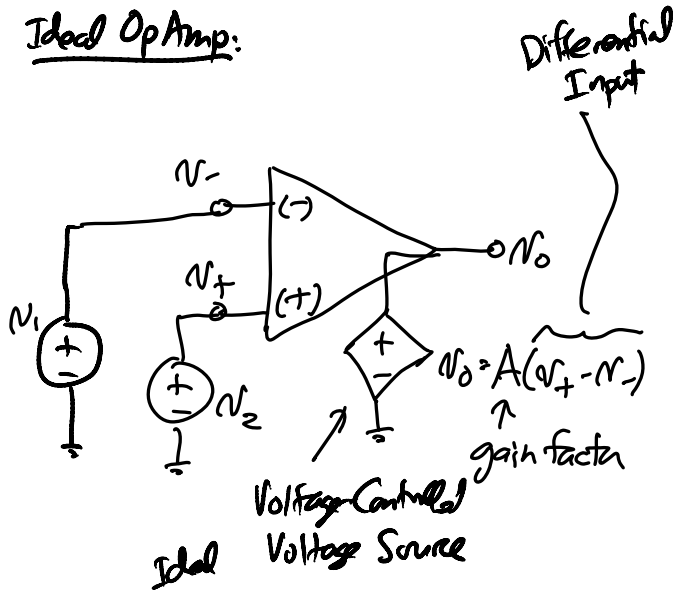 Ideal OpAmp:
Differential
Input
v-
(-)
v+
(+)
vo
v1
+
-
+
-
v2
+
-
vo = A(v+ - v-)
gain factor
Voltage-Controlled
Ideal Voltage Source